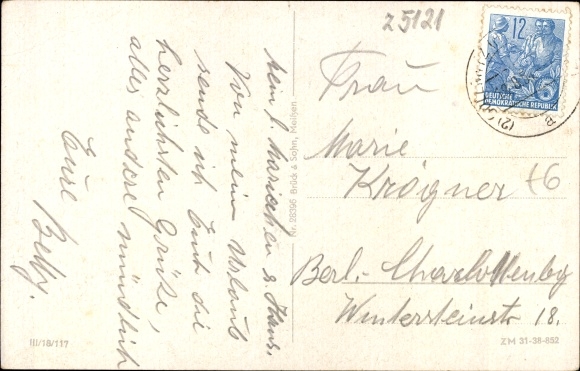 Mein l. Mariechen & Hans.
Von mein Urlaub
sende ich Euch die
herzlichsten Grüße,
alles andere mündlich
Eure Betty.
Nr. 28396 Brück & Sohn, Meißen
III/18/117
Z 5121
12
DEUTSCHE
DEMOKRATISCHE REPUBLIK
Frau
Marie
Krögner
£6
Berl.-Charlottenbg
Wintersteinstr 18.
ZM 31-38-852